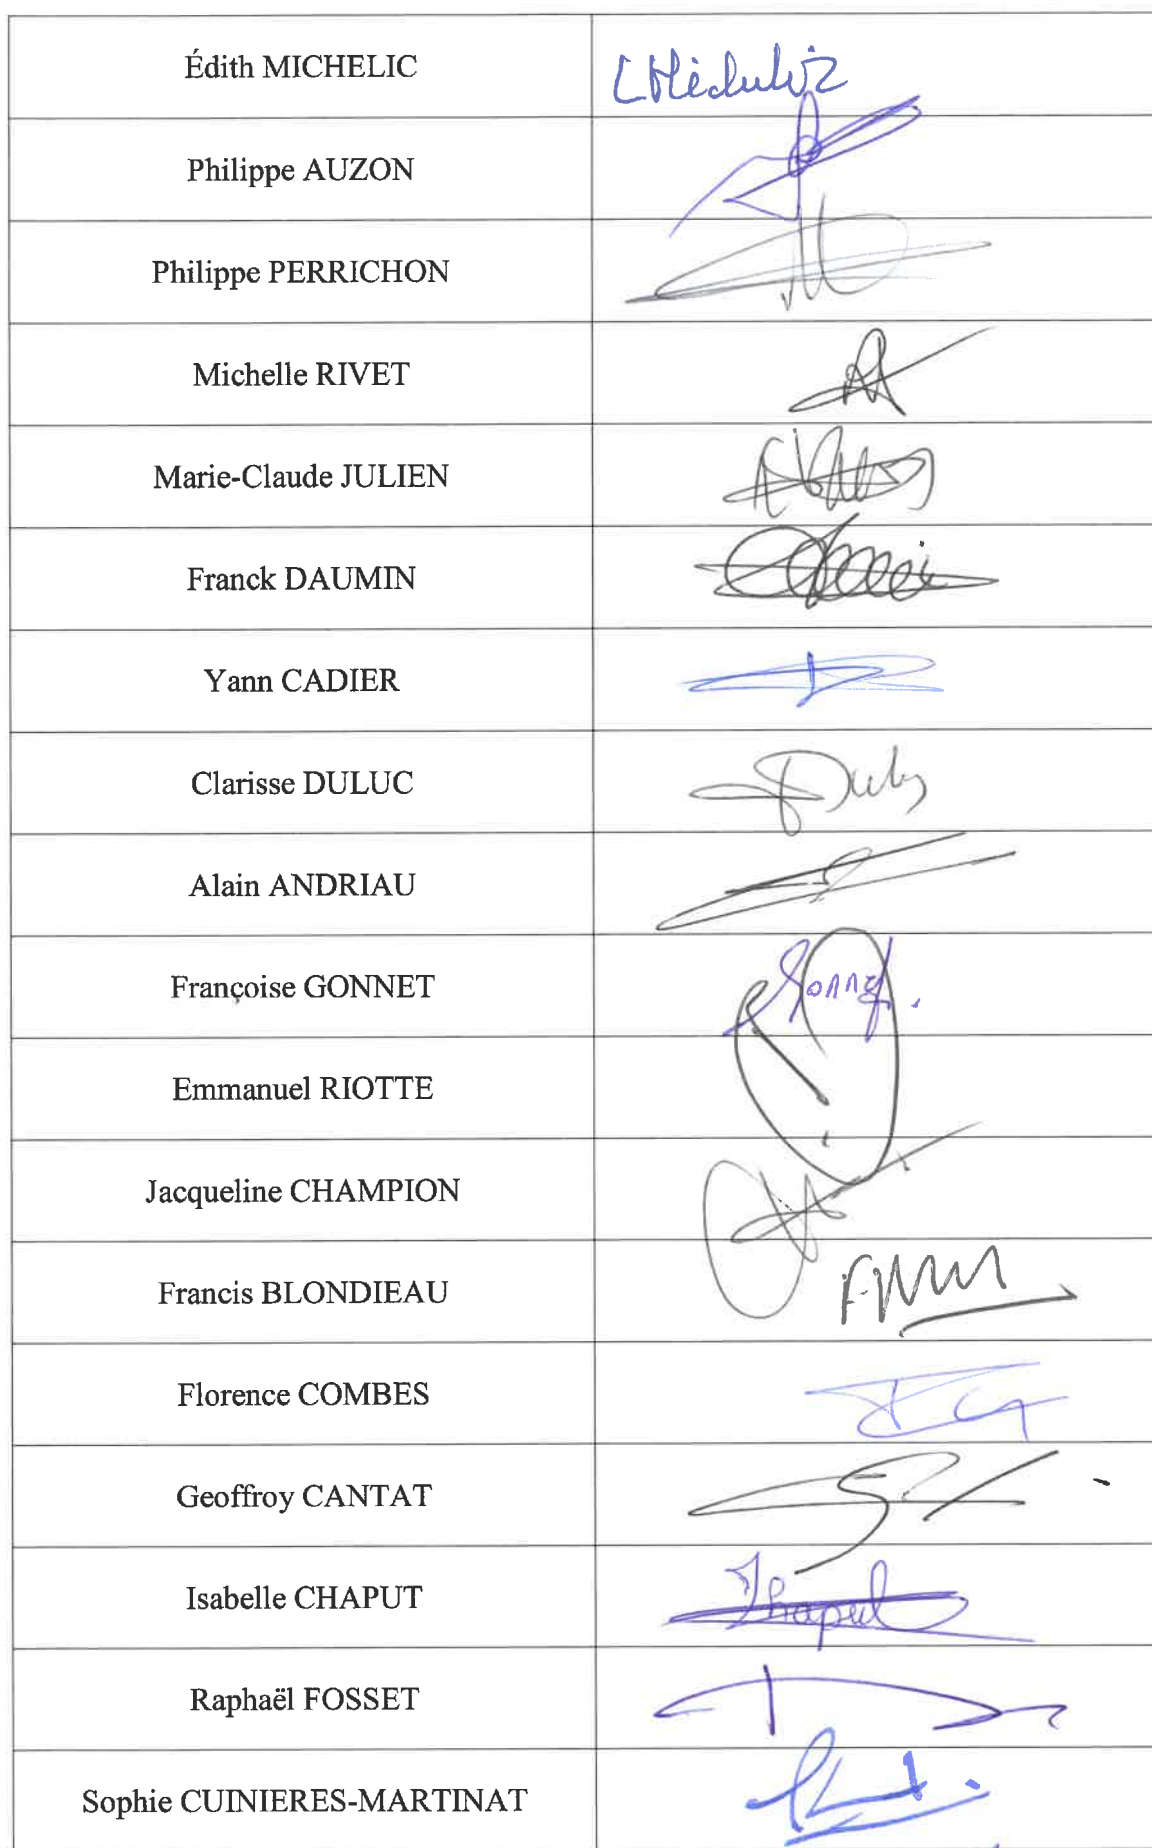 Édith MICHELIC
Philippe AUZON
Philippe PERRICHON
Michelle RIVET
Marie-Claude JULIEN
Franck DAUMIN
Yann CADIER
Clarisse DULUC
Alain ANDRIAU
Françoise GONNET
Gonnet.
Emmanuel RIOTTE
Jacqueline CHAMPION
Francis BLONDIEAU
Florence COMBES
Geoffroy CANTAT
Isabelle CHAPUT
Raphaël FOSSET
Sophie CUINIERES-MARTINAT